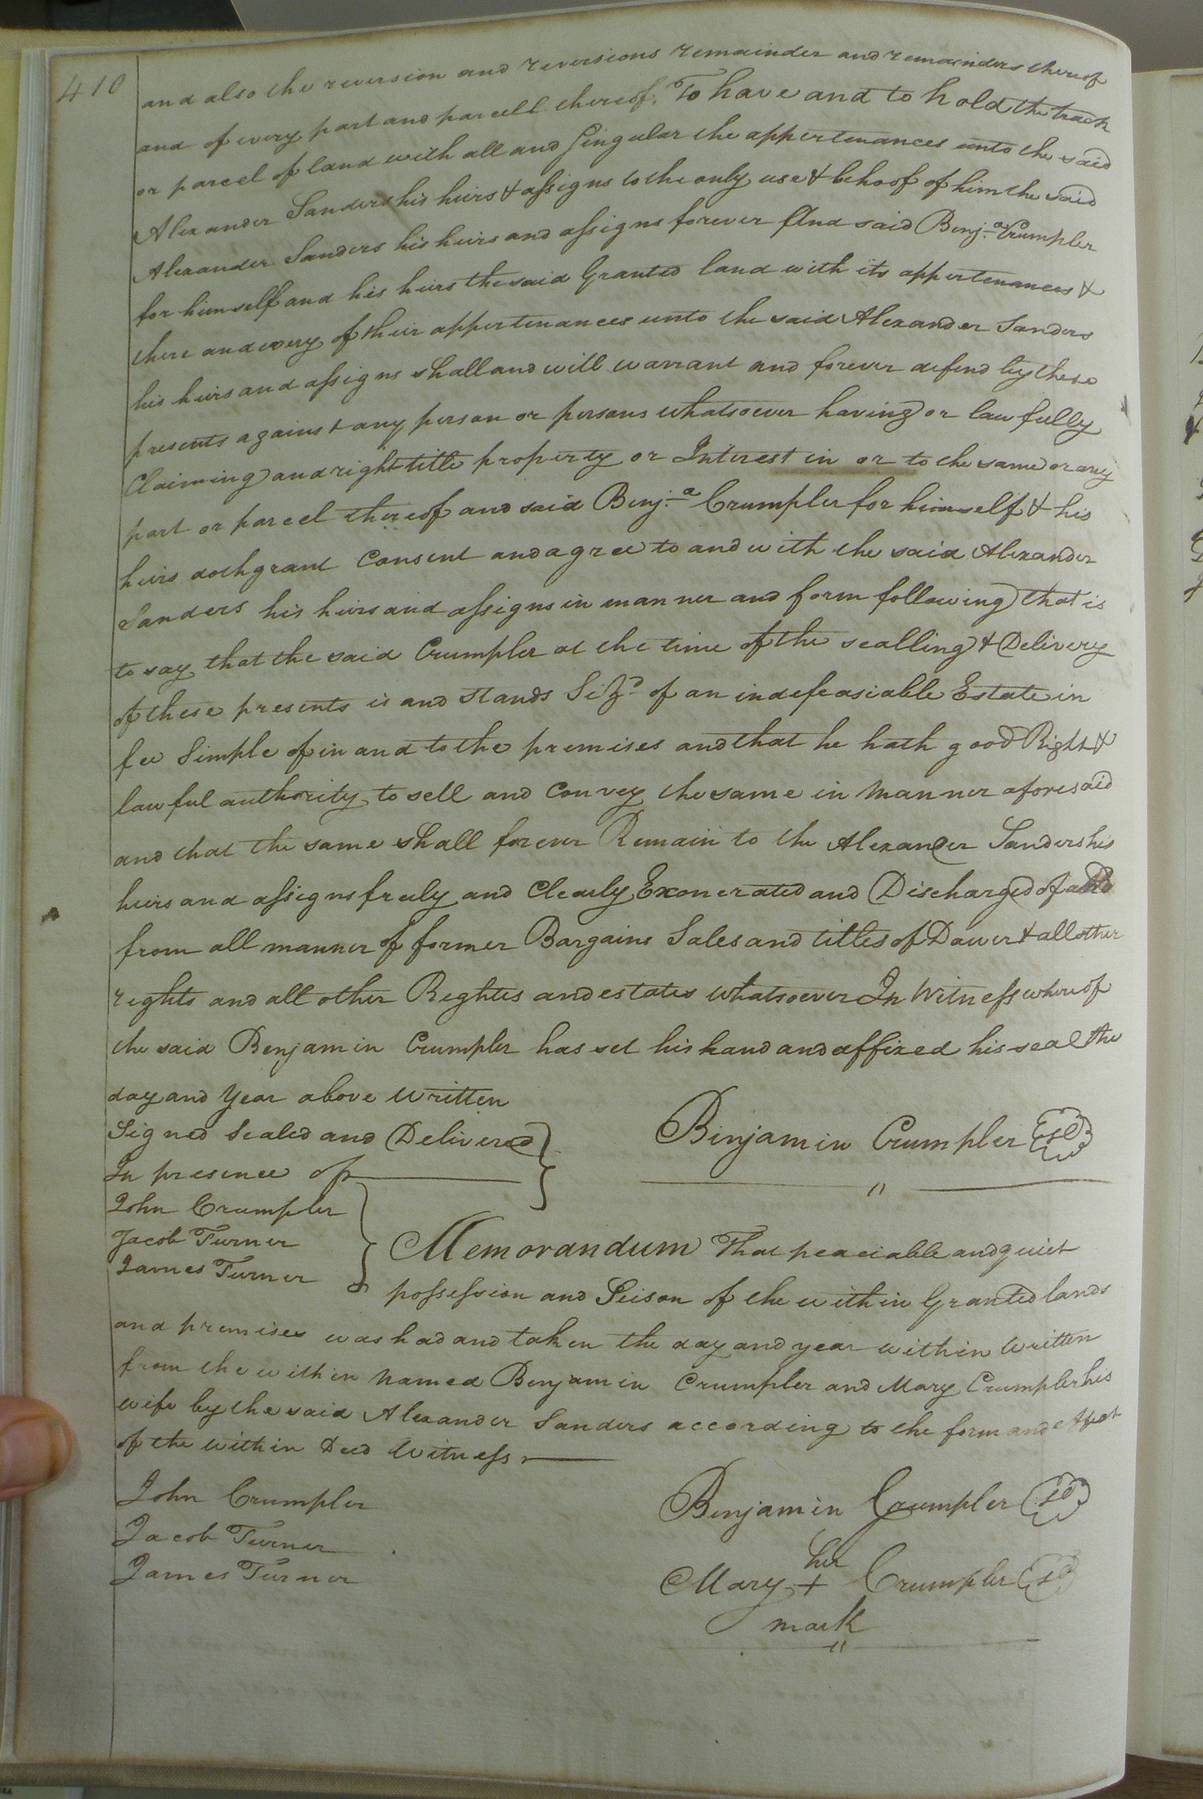 410
and also the reversion and reversions remainder and remainders thereof
and of every part and parcell thereof. To have and to hold the track
or parcel of land with all and Singular the appertenances unto the said
Alexander Sanders his heirs & assigns to the only use & behoof of him the said
Alexander Sanders his heirs and assigns forever And said Benj.a Crumpler
for himself and his heirs the said Granted land with its appertenances &
there and every of their appertenances unto the said Alexander Sanders
his heirs and assigns shall and will warrant and forever defend by these
presents against any person or persons whatsoever having or lawfully
Claiming and right title property or Interest in or to the same or any
part or parcel thereof and said Benj.a Crumpler for himself & his
heirs doth grant Consent and agree to and with the said Alexander
Sanders his heirs and assigns in manner and form following that is
to say that the said Crumpler at the time of the sealling & Delivery
of these presents is and stands Siz.d of an indefeasiable Estate in
fee Simple of in and to the premises and that he hath good Right &
lawful authority to sell and convey the same in manner aforesaid
and that the same shall forever Remain to the Alexander Sanders his
heirs and assigns freely and Clearly Exonerated and Discharged of and
from all manner of former Bargains Sales and titles of Dower & all other
rights and all other Rightes and estates whatsoever In Witness whereof
the said Benjamin Crumpler has set his hand and affixed his seal the
day and year above written
Signed Sealed and Delivered
In presence of
Benjamin Crumpler
John Crumpler
Jacob Turner
James Turner
Memorandum That peaceiable and quiet
possession and Seison of the within Granted lands
and premises was had and taken the day and year within written
from the within named Benjamin Crumpler and Mary Crumpler his
wife by the said Alexander Sanders according to the form and effect
of the within Deed Witness
John Crumpler
Jacob Turner
James Turner
Benjamin Crumpler
her
Mary + Crumpler
mark